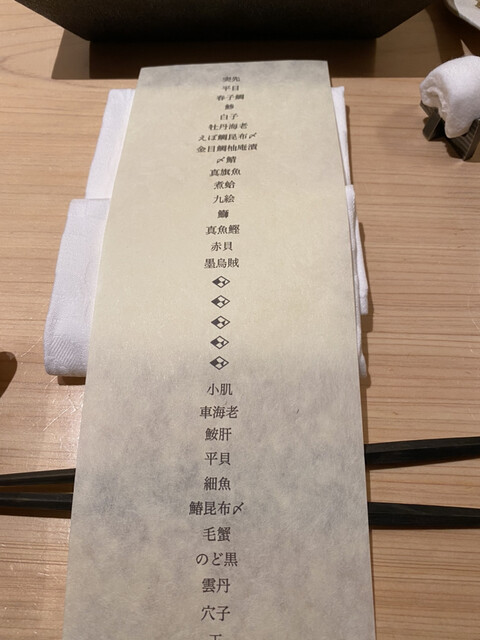 突先
平目
春子鯛
鯵
白子
牡丹海老
えぼ鯛昆布〆
金目鯛柚庵漬
〆鯖
真旗魚
煮蛤
九絵
鰤
真魚鰹
赤貝
墨烏賊
小肌
車海老
鮟肝
平貝
細魚
鰆昆布〆
毛蟹
のど黒
雲丹
穴子